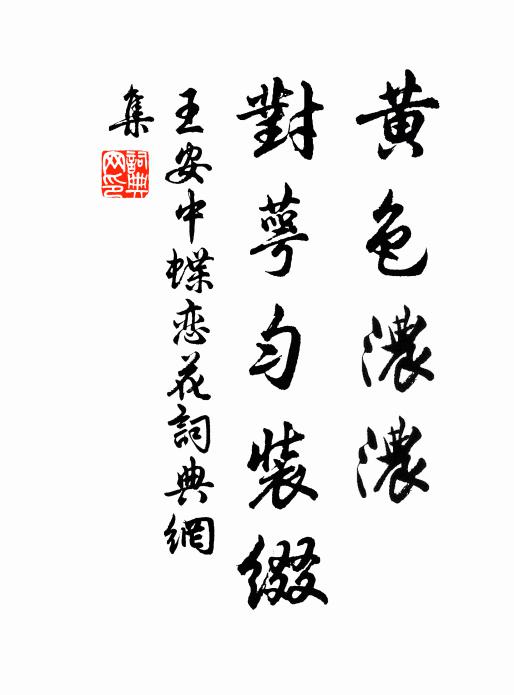 黄色濃濃
對萼勻裝綴
王安中蝶恋花詞典網
集
詞典網印